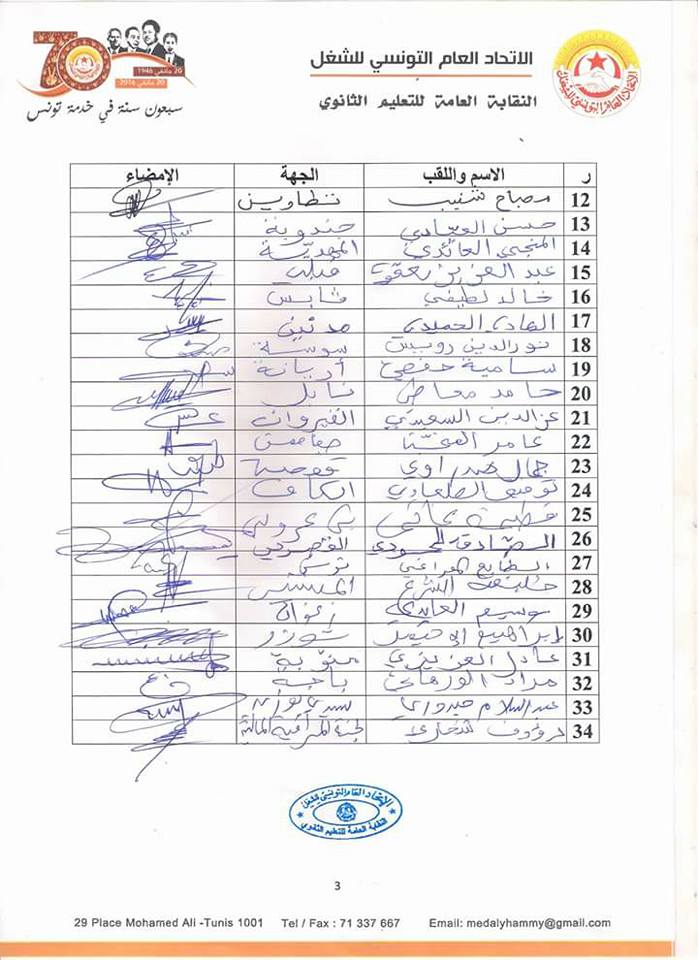 الاتحاد العام التونسي للشغل
النقابة العامة للتعليم الثانوي
70
20 جانفي 1946
20 جانفي 2016
سبعون سنة في خدمة تونس
الاتحاد العام التونسي للشغل
ر الاسم واللقب الجهة الإمضاء
12 مصباح شنيب تطاوين
13 حسن العيادي جندوبة
14 المنجي العائدي المهدية
15 عبد العزيز بن يعقوب قبلي
16 خالد لطيفي قابس
17 الهادي الحميدي مدنين
18 نور الدين رويس سوسة
19 سامية حفصي أريانة
20 حامد معاطي نابل
21 عز الدين السعيدي القيروان
22 عامر صفاقس
23 جمال هداوي قفصة
24 توفيق الكاف
25 بن عروس
26 الصادق المحمودي القصرين
27 الطايع الهراغي تونس
28 خليفة المنستير
29 وسيم العابدي زغوان
30 ابراهيم توزر
31 عادل العزيزي منوبة
32 مراد الورهاني باجة
33 عبد السلام حيدوري سيدي بوزيد
34 لجنة المراقبة المالية
الاتحاد العام التونسي للشغل
النقابة العامة للتعليم الثانوي
3
29 Place Mohamed Ali -Tunis 1001 Tel / Fax : 71 337 667 Email: medalyhammy@gmail.com